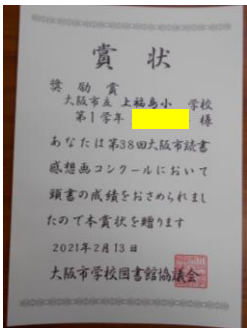 賞状
奨励賞
大阪市立 上福島小 学校
第1学年 様
あなたは第38回大阪市読書
感想画コンクールにおいて
頭書の成績をおさめられまし
たので本賞状を贈ります
2021年2月13日
大阪市学校図書館協議会